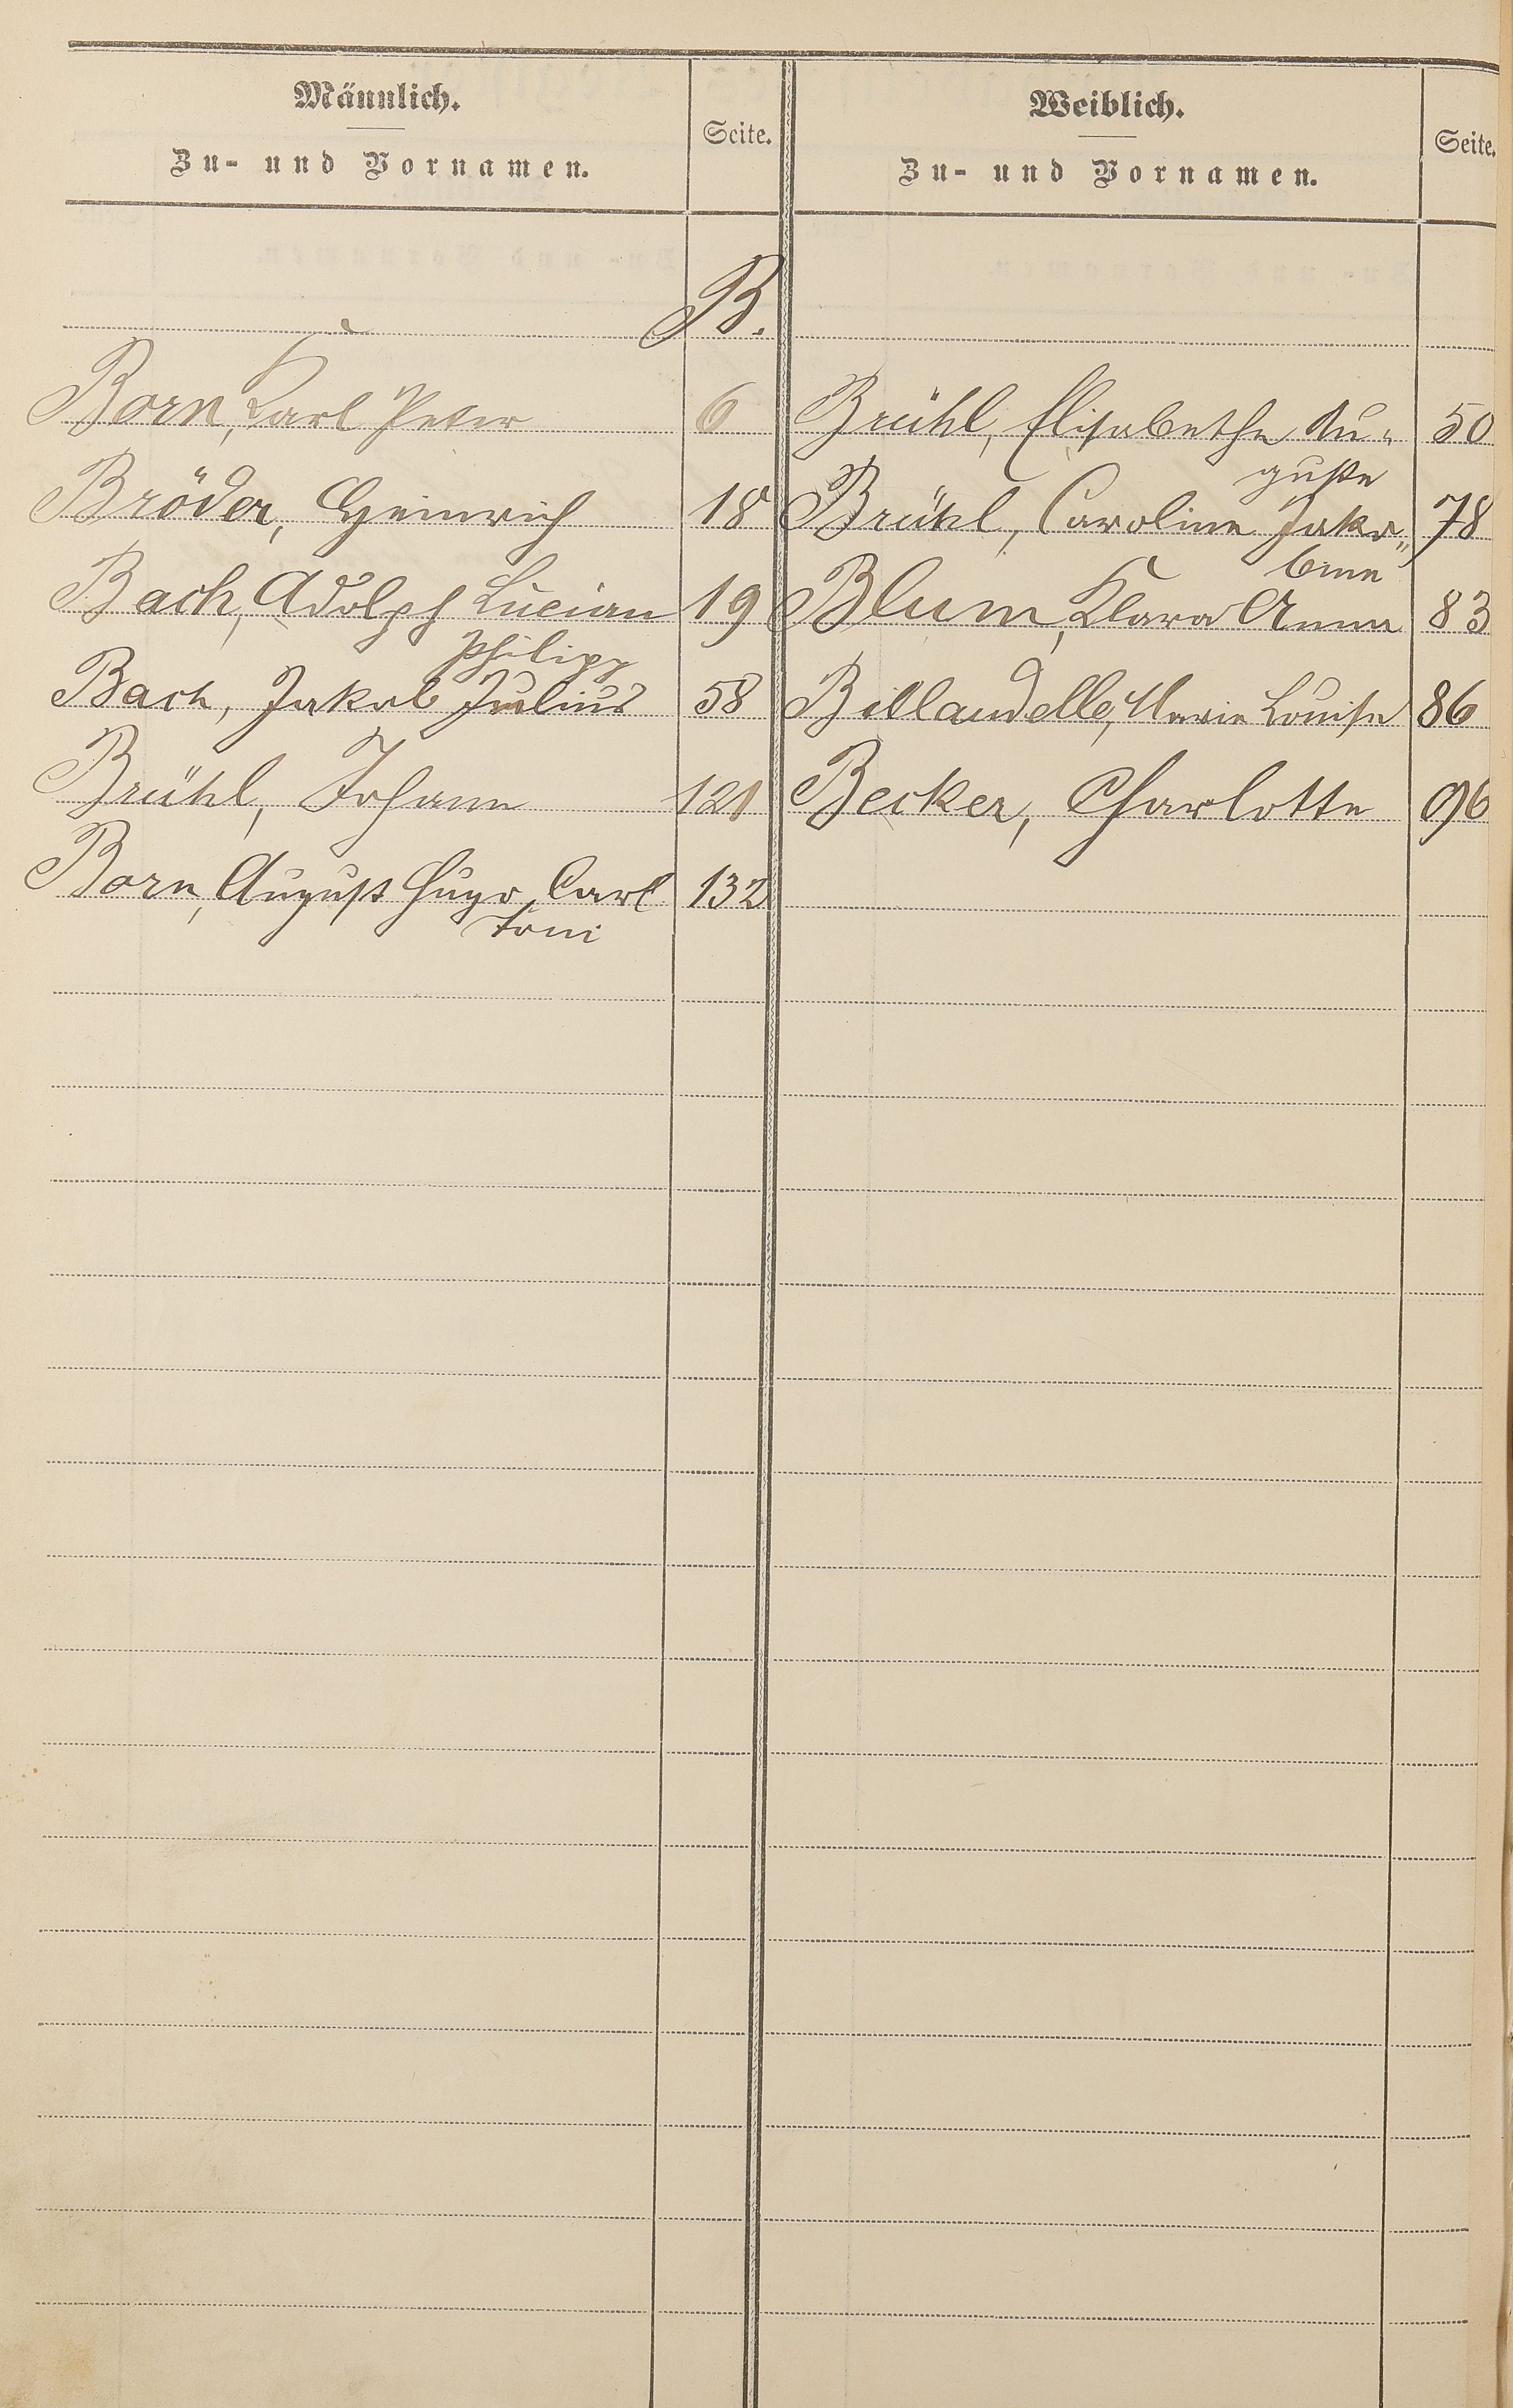 Männlich.
Zu- und Vornamen.
Seite.
Weiblich.
Zu- und Vornamen.
Seite.
B.
Born, Karl Peter 6
Bröder, Heinrich 18
Bach, Adolph Lucian 19
Philipp
Bach, Jakob Julius 58
Brühl, Johann 121
Born, August Hugo Carl 132
Toni
Brühl, Elisabetha Au- 50
guste
Brühl, Caroline Jako„ 78
bine
Blum, Klara Anna 83
Billaudelle, Marie Louise 86
Becker, Charlotte 96